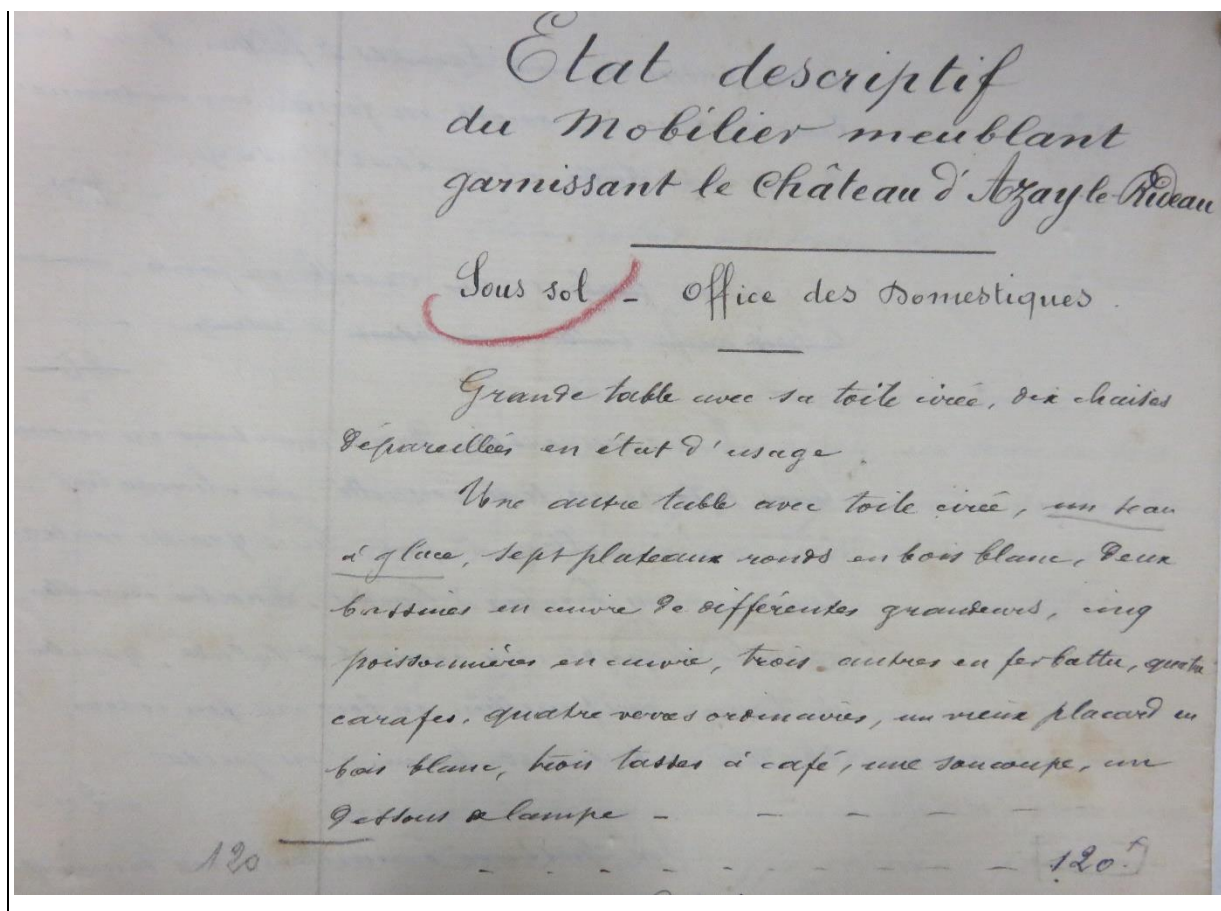 Etat descriptif
du Mobilier meublant
garnissant le Château d'Azay-le-Rideau
Sous sol - Office des Domestiques.
Grande table avec sa toile cirée, dix chaises
dépareillées en état d'usage.
Une autre table avec toile cirée, un seau
à glace, sept plateaux ronds en bois blanc, deux
bassines en cuivre de différentes grandeurs, cinq
poissonnières en cuivre, trois autres en fer battu, quatre
carafes, quatre verres ordinaires, un vieux placard en
bois blanc, trois tasses à café, une soucoupe, un
dessous de lampe - - - - -
120 - - - - - - - - - 120 f